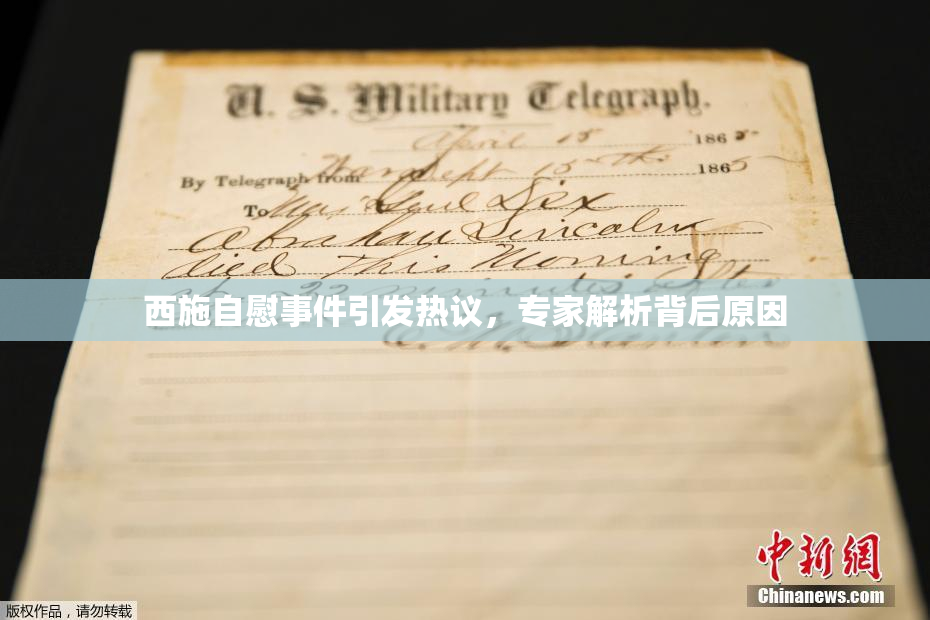 U. S. Military Telegraph.
April 15 1865
By Telegraph from War Dept 15th 1865
To Maj Genl Dix
Abraham Lincoln
died This Morning
22 minutes after
西施自慰事件引发热议，专家解析背后原因
E. M. Stanton
中新网
Chinanews.com
版权作品，请勿转载